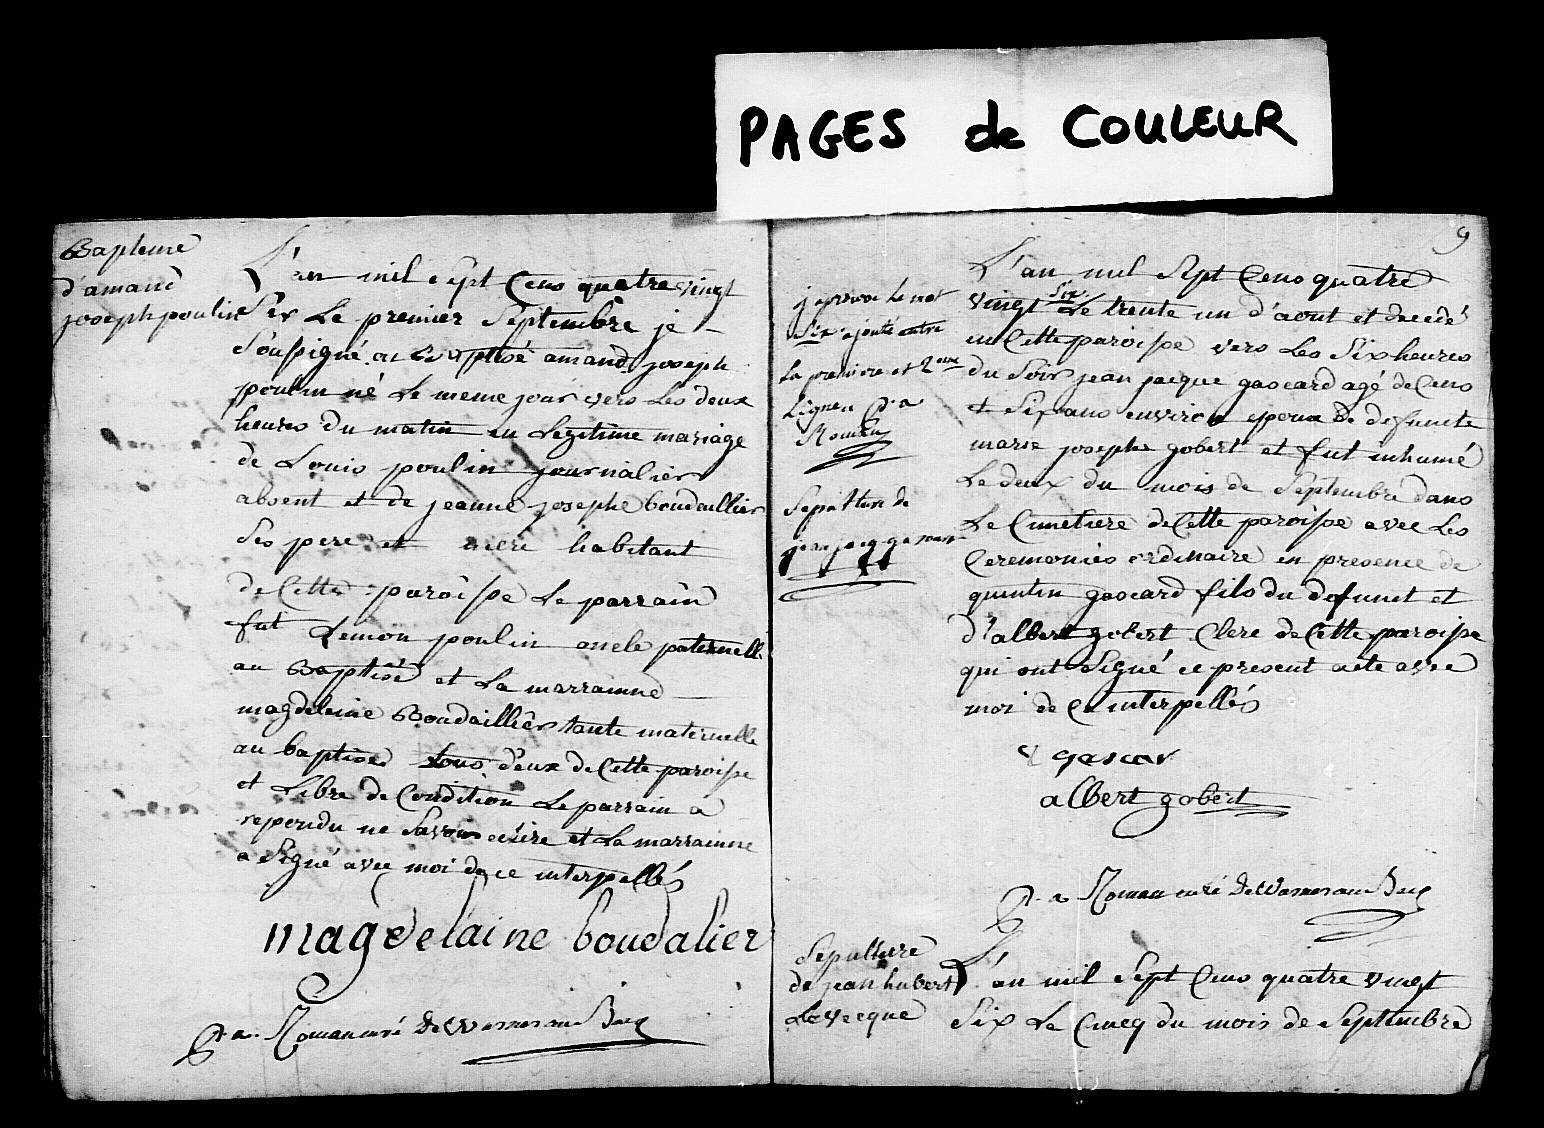 PAGES de COULEUR
Bapteme
d'amand
joseph poulin
L'an mil sept Cens quatre vingt
Six Le premier Septembre je
Soussigné ai Baptisé amand joseph
poulin né Le meme jour vers Les deux
heures du matin en Legitime mariage
de Louis poulin journalier
absent et de jeanne josephe boudaillier
Ses pere et mere habitant
de Cette paroisse Le parrain
fut poulin oncle paternelle
au Baptisé et La marrainne
magdeleine Boudaillier tante maternelle
au baptisé tous deux de Cette paroisse
et Libre de Condition Le parrain a
repondu ne Savoir ecrire et La marrainne
a Signé avec moi de ce interpellés
magdelaine boudalier
p. a. Roman curé de Wasnes au Bacq
9
j'aprouve Le mot
Six ajouté entre
La premiere et 2eme
Lignes p. a
Roman
Sepulture de
jean jacq gascar
L'an mil Sept Cens quatre
vingt Six Le trente un d'aout et decedé
en Cette paroisse vers Les Six heures
du Soir jean jacque gascard agé de Cens
et Six ans environ epoux de defuncte
marie josephe gobert et fut inhumé
Le deux du mois de Septembre dans
Le Cimetiere de Cette paroisse avec Les
Ceremonies ordinaire en presence de
quentin gascard fils du defunct et
d'albert gobert Clerc de Cette paroisse
qui ont Signé ce present acte avec
moi de Ce interpellés
q gascar
albert gobert
p. a. Roman curé de Wasnes au Bacq
Sepulture
de jean hubert
Levecque
L'an mil Sept Cens quatre vingt
Six Le Cincq du mois de Septembre